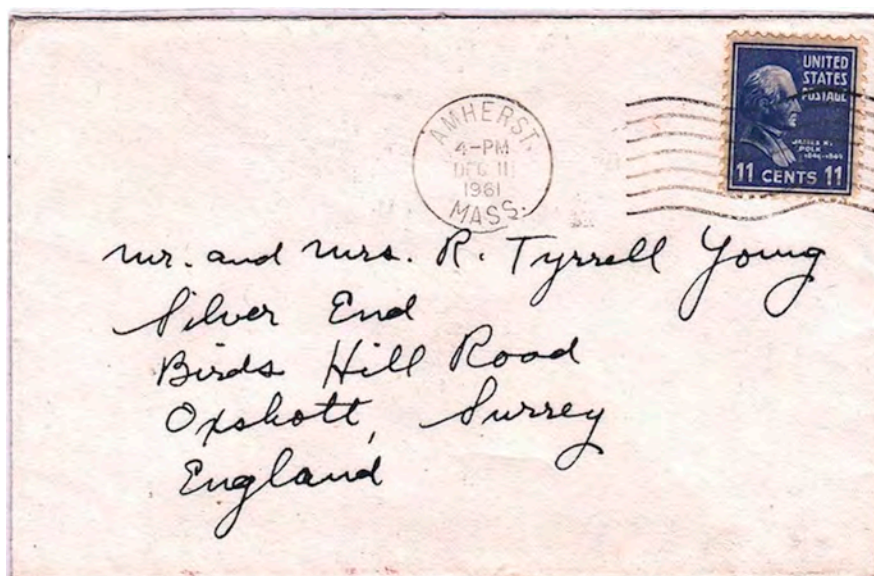 UNITED
STATES
POSTAGE
JAMES K.
POLK
11 CENTS 11
AMHERST.
4-PM
DEC 11
1961
MASS.
Mr. and Mrs. R. Tyrrell Young
Silver End
Birds Hill Road
Oxshott, Surrey
England